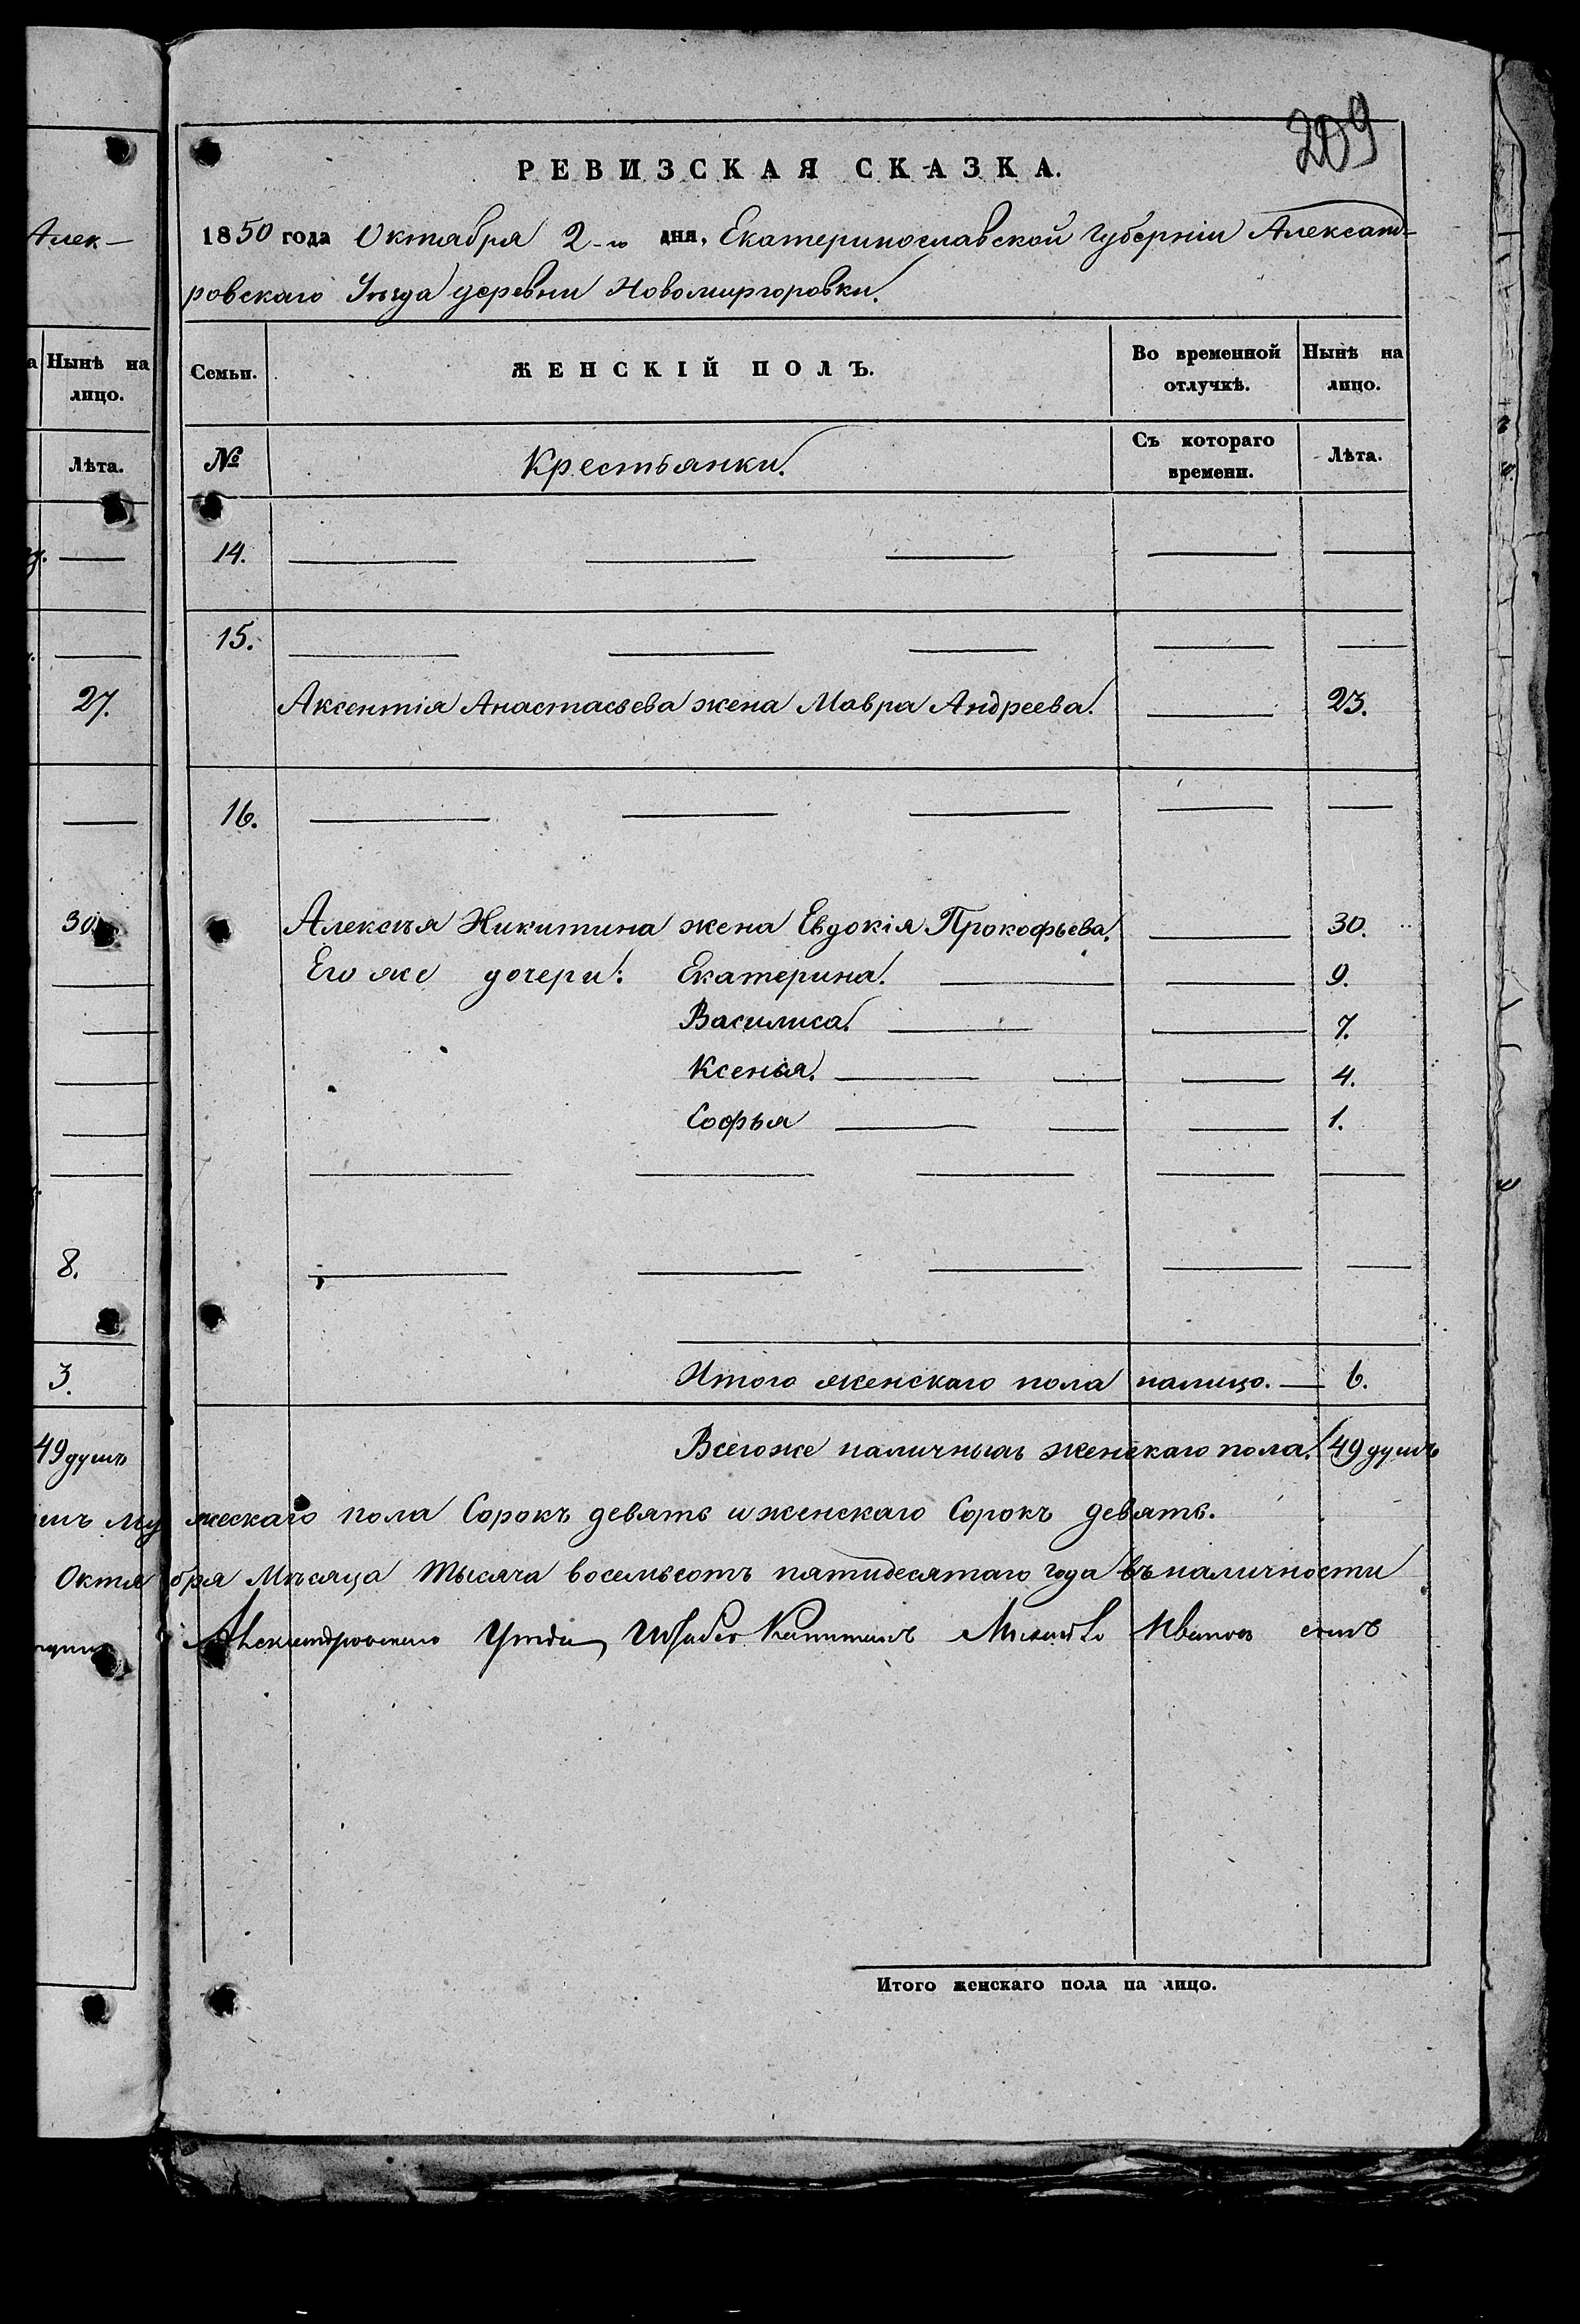 209
РЕВИЗСКАЯ СКАЗКА.
1850 года Октября 2-го дня, Екатеринославской Губерніи Александ-
ровскаго Уѣзда деревни Новомиргоровки.
Алек-
Нынѣ на лицо.
Лѣта.
27.
30.
8.
3.
49 душъ
Семьи.
ЖЕНСКІЙ ПОЛЪ.
Во временной отлучкѣ.
Нынѣ на лицо.
№
Крестьянки.
Съ котораго времени.
Лѣта.
14.
15.
Аксентія Анастасьева жена Мавра Андреева. 23.
16.
Алексѣя Никитина жена Евдокія Прокофьева. 30.
Его же дочери: Екатерина. 9.
Василиса. 7.
Ксенія. 4.
Софья 1.
Итого женскаго пола налицо. 6.
Всего же наличныхъ женскаго пола. 49 душъ
Мужескаго пола Сорокъ девять и женскаго Сорокъ девять.
Октября Мѣсяца Тысяча восемьсотъ пятидесятаго года въ наличности
Александровскаго Уѣзда Штабсъ Капитанъ Ивановъ сынъ
Итого женскаго пола на лицо.